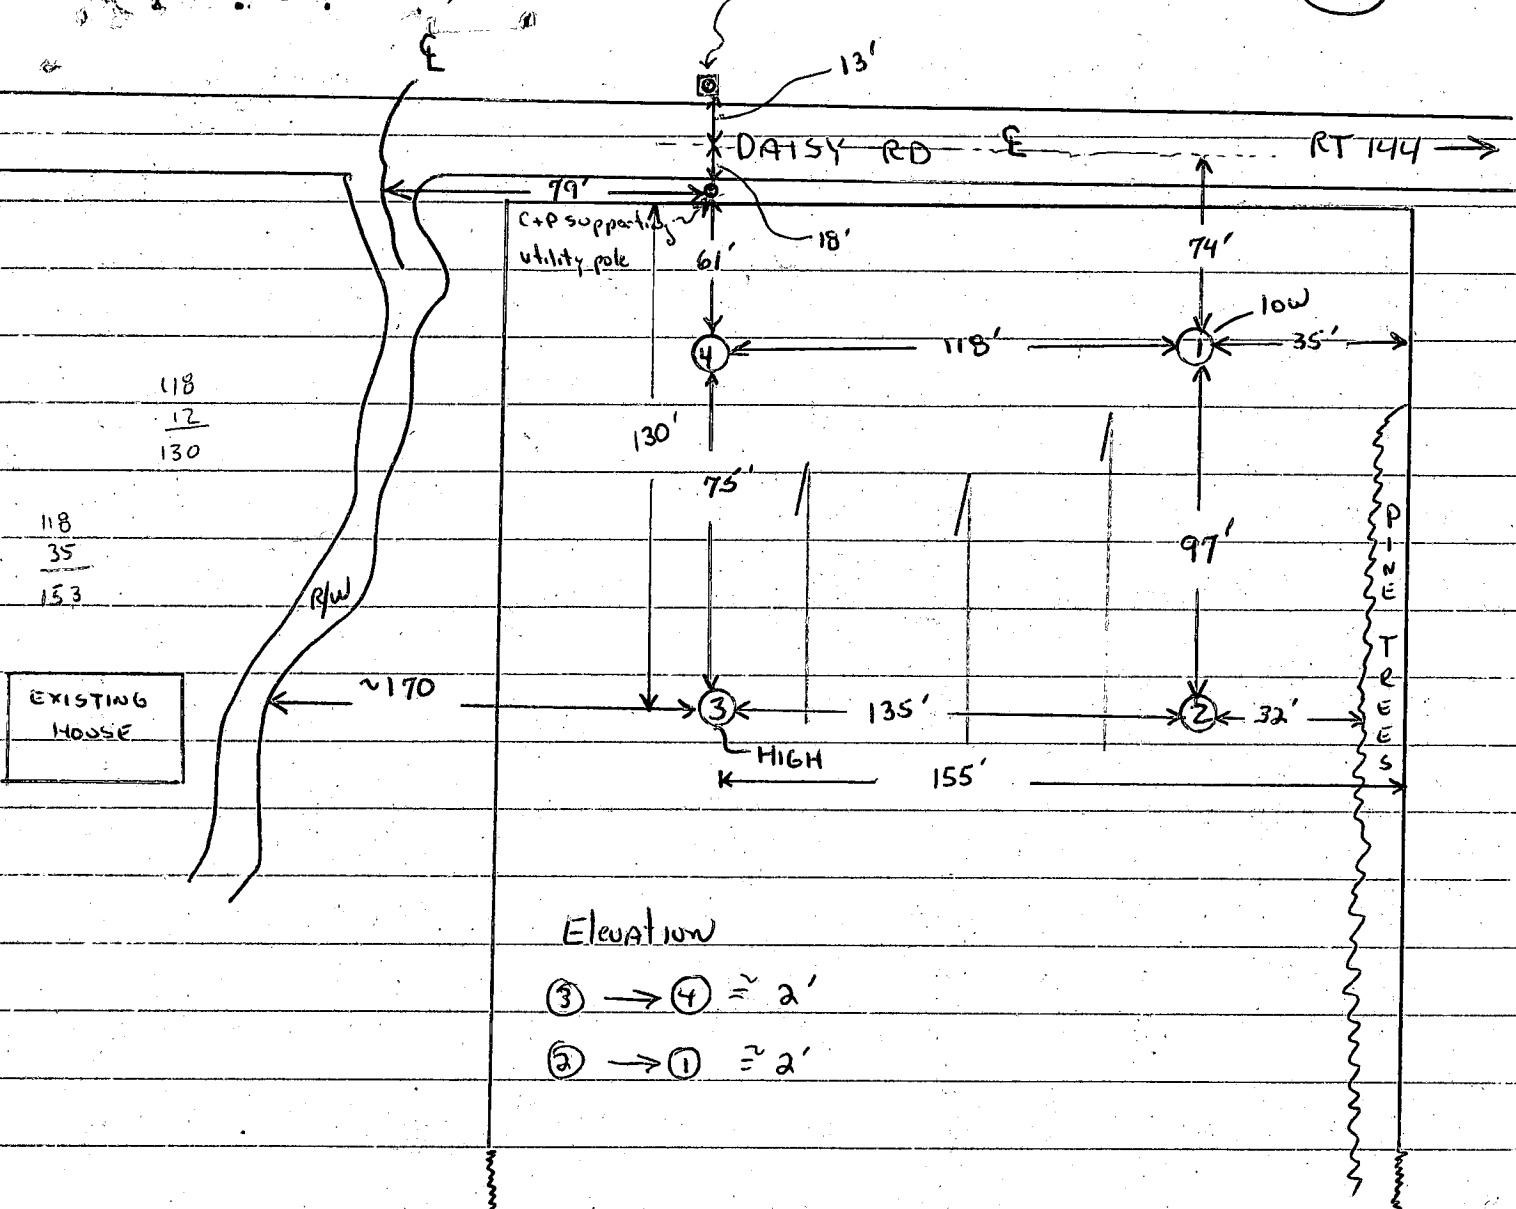 ℄
13'
DAISY RD ℄ RT 144
79'
C+P supporting
utility pole
18'
61'
74'
low
4
118'
1
35'
118
12
130
130'
75'
97'
118
35
153
R/W
PINE TREES
EXISTING
HOUSE
~170
3
135'
2
32'
HIGH
155'
Elevation
3 → 4 ≅ 2'
2 → 1 ≅ 2'